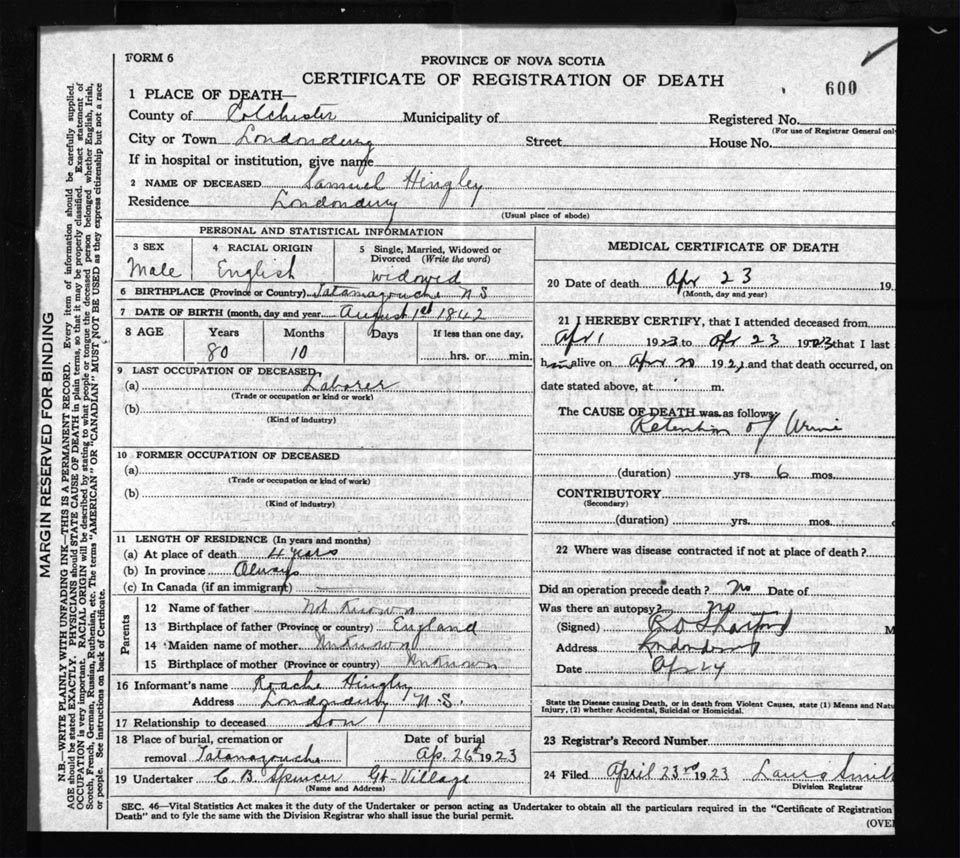 FORM 6
PROVINCE OF NOVA SCOTIA
CERTIFICATE OF REGISTRATION OF DEATH
600
1 PLACE OF DEATH—
County of Colchester Municipality of Registered No.
(For use of Registrar General only
City or Town Londonderry Street House No.
If in hospital or institution, give name
2 NAME OF DECEASED Samuel Hingley
Residence Londonderry
(Usual place of abode)
PERSONAL AND STATISTICAL INFORMATION
3 SEX 4 RACIAL ORIGIN 5 Single, Married, Widowed or Divorced (Write the word)
Male English widowed
6 BIRTHPLACE (Province or Country) Tatamagouche N S
7 DATE OF BIRTH (month, day and year August 1st 1842
8 AGE Years Months Days If less than one day,
80 10 hrs. or min.
9 LAST OCCUPATION OF DECEASED
(a) Laborer
(Trade or occupation or kind or work)
(b)
(Kind of industry)
10 FORMER OCCUPATION OF DECEASED
(a)
(Trade or occupation or kind of work)
(b)
(Kind of industry)
11 LENGTH OF RESIDENCE (In years and months)
(a) At place of death 4 years
(b) In province Always
(c) In Canada (if an immigrant)
Parents
12 Name of father Not Known
13 Birthplace of father (Province or country) England
14 Maiden name of mother Unknown
15 Birthplace of mother (Province or country) Unknown
16 Informant's name Roache Hingley
Address Londonderry N.S.
17 Relationship to deceased Son
18 Place of burial, cremation or Date of burial
removal Tatamagouche Ap. 26th 1923
19 Undertaker C. B. Spencer Gt. Village
(Name and Address)
MEDICAL CERTIFICATE OF DEATH
20 Date of death Apr 23 19
(Month, day and year)
21 I HEREBY CERTIFY, that I attended deceased from
Apr 1 1923 to Apr 23 1923 that I last
him alive on Apr 20 192 and that death occurred, on
date stated above, at m.
The CAUSE OF DEATH was as follows
Retention of Urine
(duration) yrs. 6 mos.
CONTRIBUTORY
(Secondary)
(duration) yrs. mos.
22 Where was disease contracted if not at place of death?
Did an operation precede death? No Date of
Was there an autopsy? no
(Signed) M
Address Londonderry
Date Apr 24
State the Disease causing Death, or in death from Violent Causes, state (1) Means and Natu
Injury, (2) whether Accidental, Suicidal or Homicidal.
23 Registrar's Record Number
24 Filed April 23rd 1923 Smith
Division Registrar
SEC. 46—Vital Statistics Act makes it the duty of the Undertaker or person acting as Undertaker to obtain all the particulars required in the "Certificate of Registration
Death" and to fyle the same with the Division Registrar who shall issue the burial permit.
(OVE
MARGIN RESERVED FOR BINDING
N.B.—WRITE PLAINLY WITH UNFADING INK—THIS IS A PERMANENT RECORD. Every item of information should be carefully supplied.
AGE should be stated EXACTLY. PHYSICIANS should STATE CAUSE OF DEATH in plain terms, so that it may be properly classified. Exact statement of
OCCUPATION is very important. RACIAL ORIGIN will be described by stating to what people or tongue the deceased person belonged whether English, Irish,
Scotch, French, German, Russian, Ruthenian, etc. The terms "AMERICAN" OR "CANADIAN" MUST NOT BE USED as they express citizenship but not a race
or people. See instructions on back of Certificate.